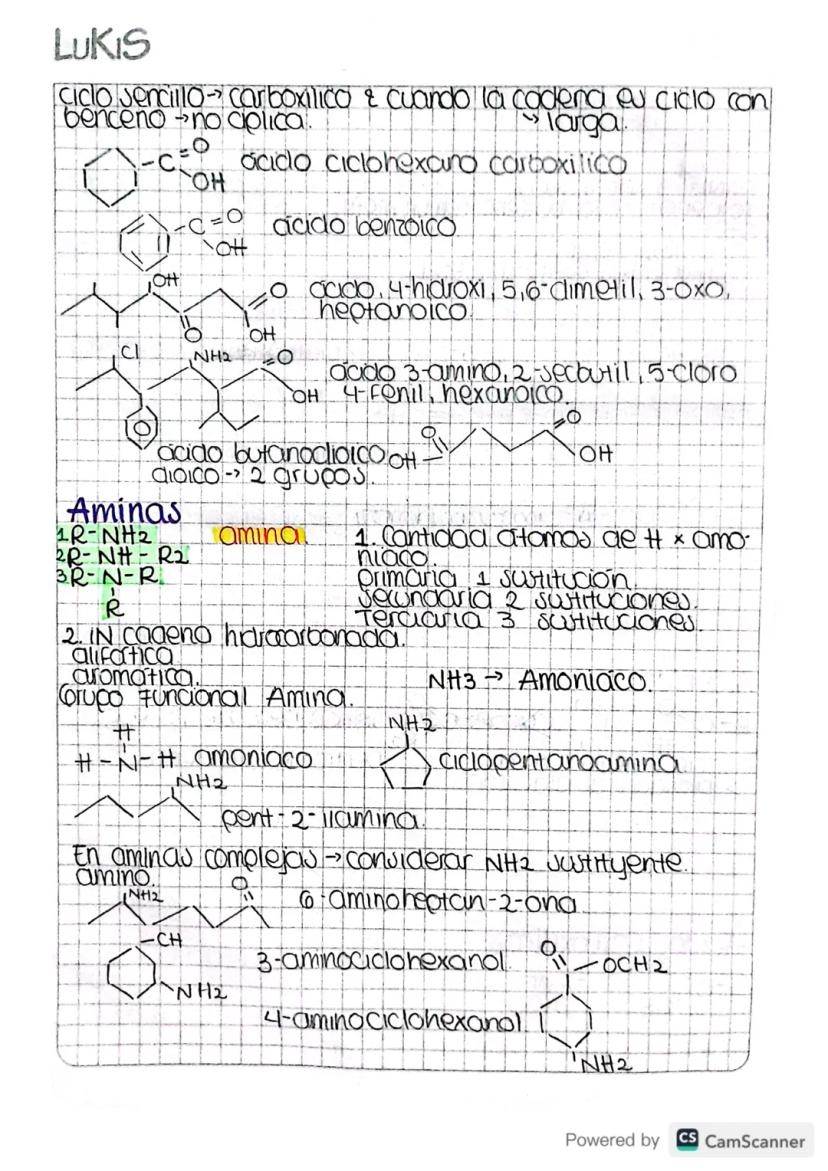 LUKIS
ciclo sencillo → carboxilico & cuando la cadena es ciclo con
benceno → no aplica. ↳ larga.
-C=O
OH
ácido ciclohexano carboxilico
-C=O
OH
ácido benzoico
OH
O
O
OH
ácido, 4-hidroxi, 5,6-dimetil, 3-oxo,
heptanoico
Cl
NH2
O
OH
ácido 3-amino, 2-secbutil, 5-cloro
4-fenil, hexanoico.
ácido butanodioico
dioico → 2 grupos.
O
OH
O
OH
Aminas
1R-NH2
2R-NH-R2
3R-N-R
R
amina
1. Cantidad átomos de H x amo-
niaco.
primaria 1 sustitución
secundaria 2 sustituciones.
Terciaria 3 sustituciones.
2. IN cadena hidrocarbonada.
alifática
aromática.
NH3 → Amoniaco.
Grupo Funcional Amina.
H
H-N-H amoniaco
NH2
ciclopentanoamina
NH2
pent-2-ilamina.
En aminas complejas → considerar NH2 sustityente
amino.
NH2
O
6-aminoheptan-2-ona
-CH
NH2
3-aminociclohexanol
O
-OCH2
4-aminociclohexanol
NH2
Powered by CS CamScanner